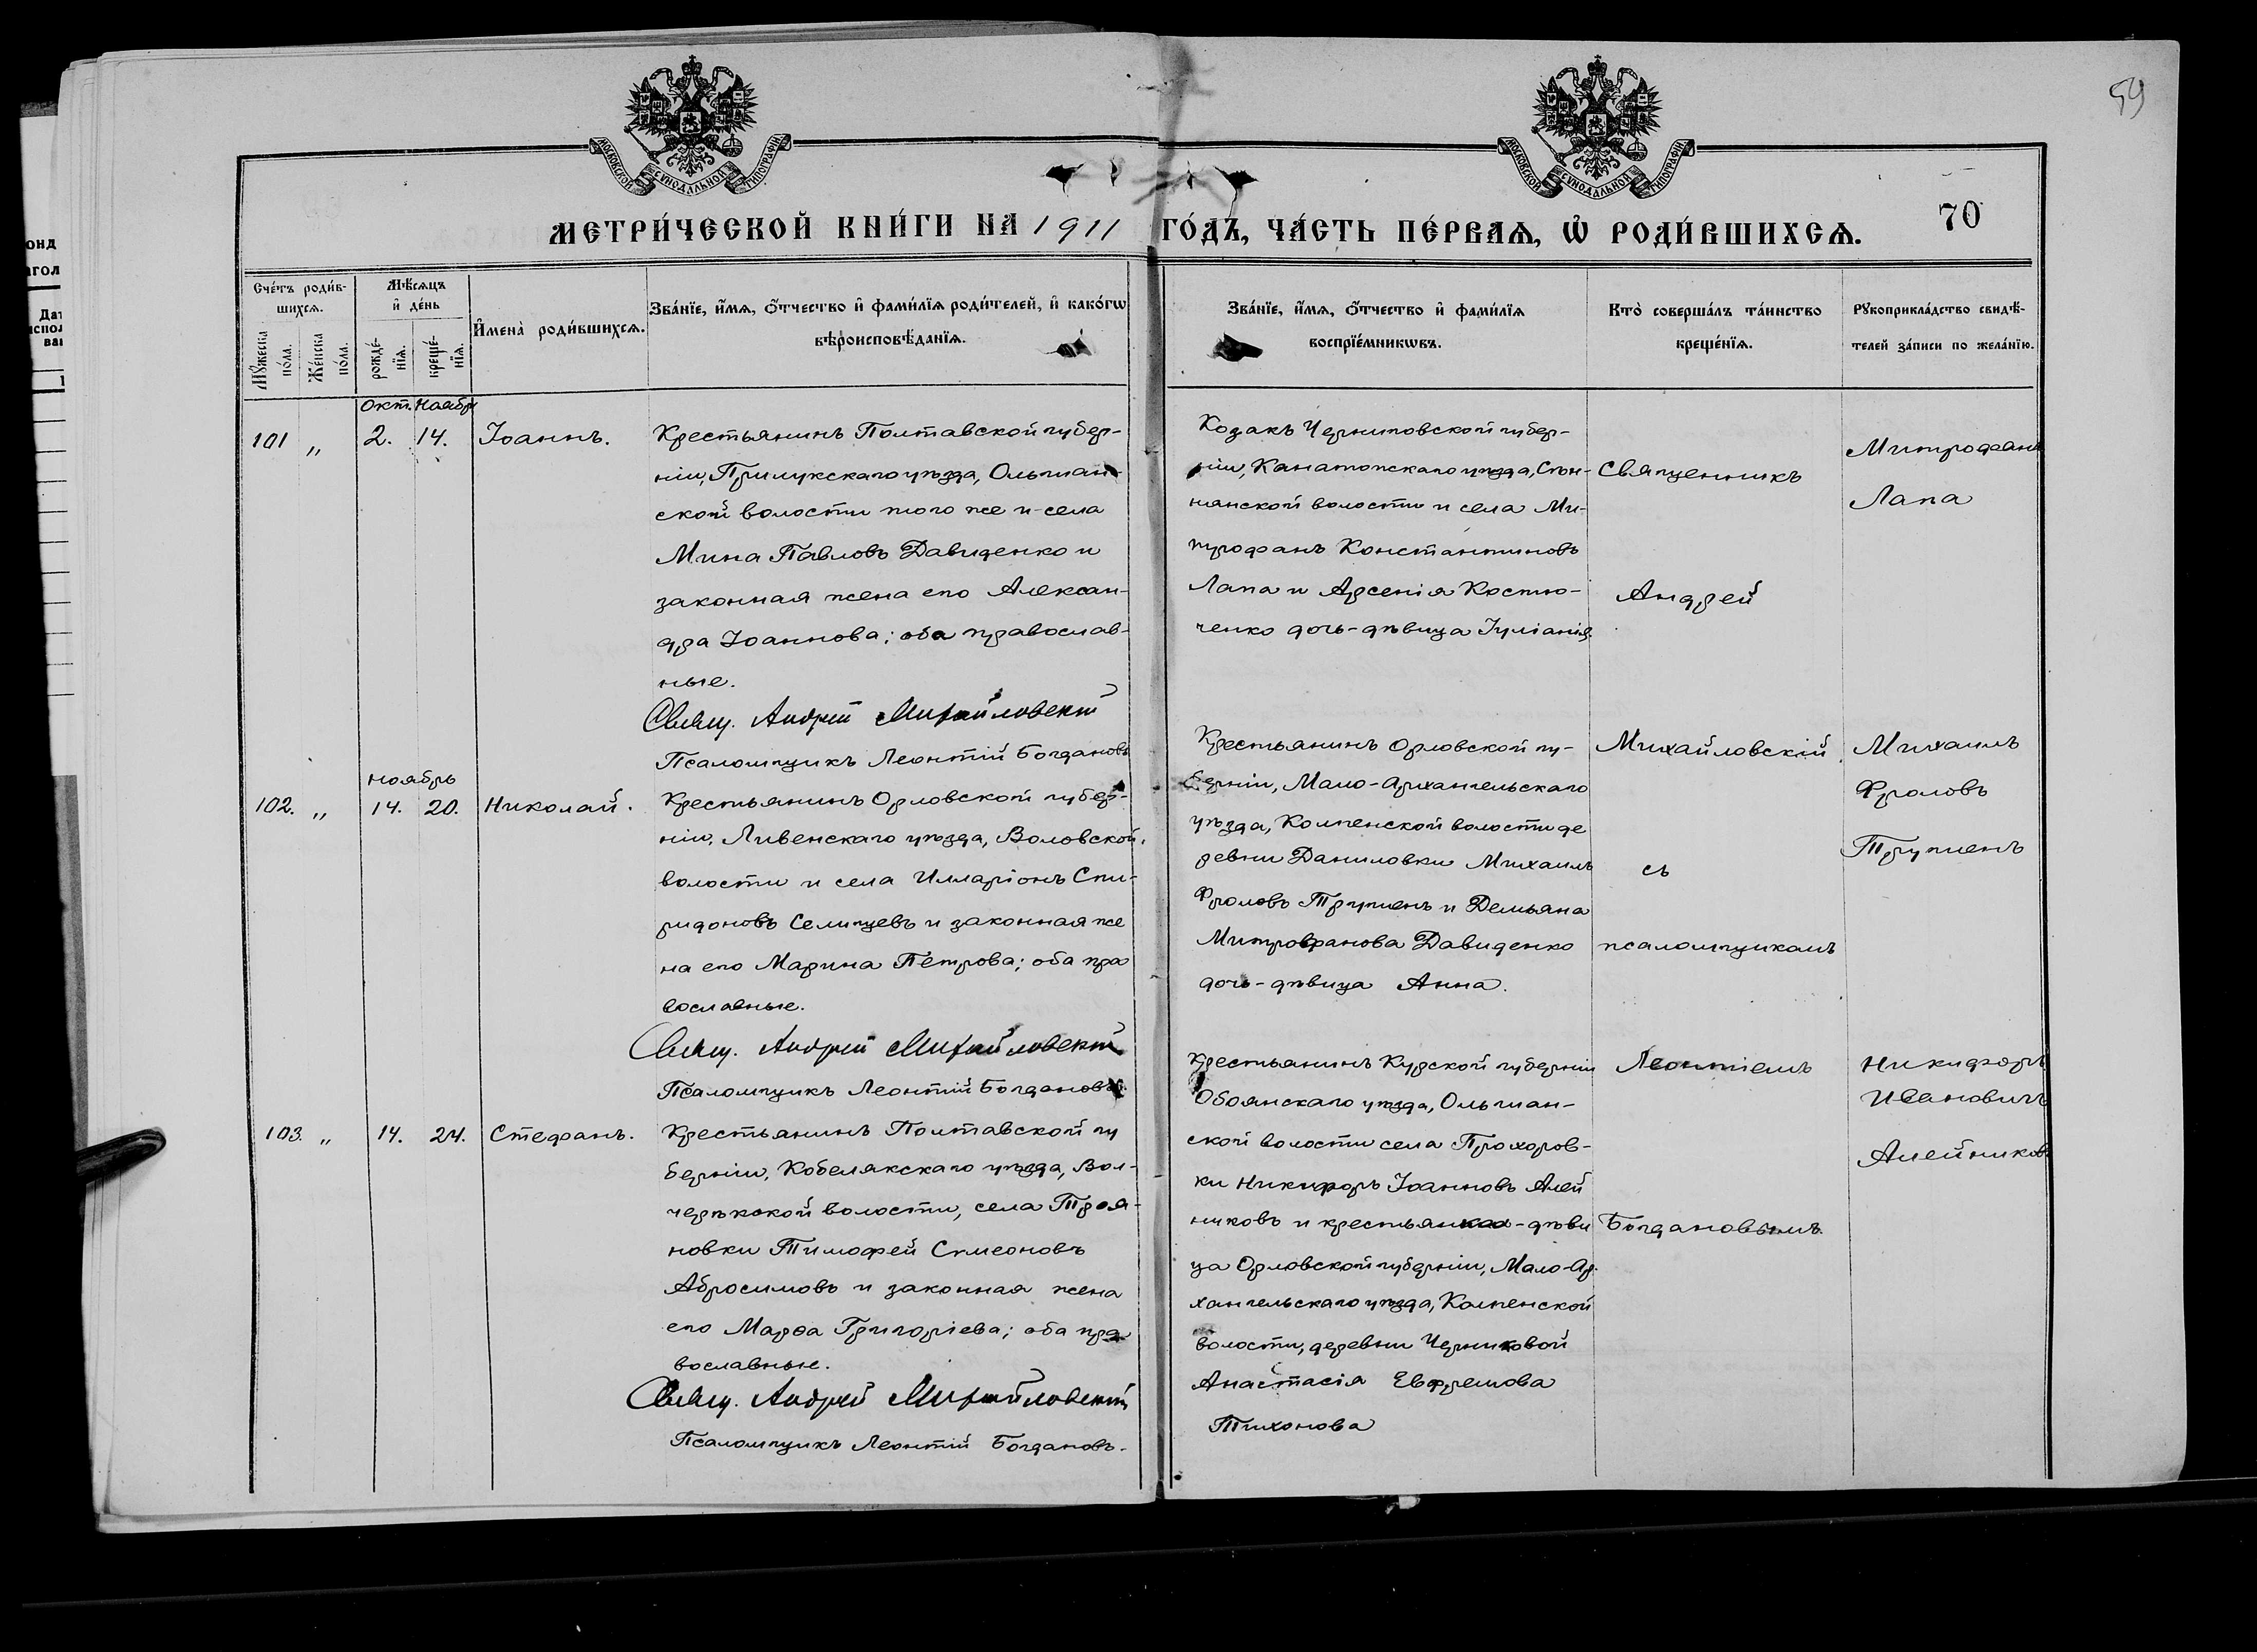 59
МОСКОВСКОЙ СУНОДАЛЬНОЙ ТИПОГРАФІИ
МОСКОВСКОЙ СУНОДАЛЬНОЙ ТИПОГРАФІИ
МЕТРИ́ЧЕСКОЙ КНИ́ГИ НА 1911 ГО́ДЪ, ЧА́СТЬ ПЕ́РВАѦ, Ѡ҆ РОДИ́ВШИХСѦ. 70
Сче́тъ роди́в-
шихсѧ.
Мꙋ́жеска по́ла.
Же́нска по́ла.
Мѣ́сѧцъ
и҆ де́нь
рожде́-нїѧ.
креще́-нїѧ.
И҆мена̀ роди́вшихсѧ.
Зва́нїе, и҆́мѧ, ѻ҆́тчество и҆ фами́лїѧ роди́телей, и҆ како́гѡ
вѣроисповѣ́данїѧ.
Зва́нїе, и҆́мѧ, ѻ҆́тчество и҆ фами́лїѧ
воспрїе́мникѡвъ.
Кто̀ соверша́лъ та́инство
креще́нїѧ.
Рꙋкоприкла́дство свидѣ́-
телей за́писи по жела́нїю.
Окт. Ноябр
101 „ 2. 14. Іоаннъ.
Крестьянинъ Полтавской губер-
ніи, Прилукскаго уѣзда, Ольшан-
ской волости того же и села
Мина Павловъ Давиденко и
законная жена его Алексан-
дра Іоаннова; оба православ-
ные.
Свящ. Андрей Михайловскій
Псаломщикъ Леонтій Богдановъ
Козакъ Черниговской губер-
ніи, Канатопскаго уѣзда,
нянской волости и села Ми-
трофанъ Константиновъ
Лапа и Арсенія Костю-
ченко дочь-дѣвица Іуліанія.
Священникъ
Андрей
Михайловскій
съ
псаломщикомъ
Леонтіемъ
Богдановымъ.
Митрофанъ
Лапа
ноябрь
102. „ 14. 20. Николай.
Крестьянинъ Орловской губер-
ніи, Ливенскаго уѣзда, Воловской
волости и села Илларіонъ Спи-
ридоновъ Селищевъ и законная же
на его Марина Петрова; оба пра
вославные.
Свящ. Андрей Михайловскій
Псаломщикъ Леонтій Богдановъ
Крестьянинъ Орловской гу-
берніи, Мало-Архангельскаго
уѣзда, Колпенской волости де
ревни Даниловки Михаилъ
Фроловъ Трутенъ и Демьяна
Митрофанова Давиденко
дочь-дѣвица Анна.
Михаилъ
Фроловъ
Трутенъ
103. „ 14. 24. Стефанъ.
Крестьянинъ Полтавской гу
берніи, Кобелякскаго уѣзда, Вол-
черѣкской волости, села Троя-
новки Тимофей Симеоновъ
Абросимовъ и законная жена
его Марѳа Григоріева; оба пра
вославные.
Свящ. Андрей Михайловскій
Псаломщикъ Леонтій Богдановъ.
Крестьянинъ Курской губерніи
Обоянскаго уѣзда, Ольшан-
ской волости села Прохоров-
ки Никифоръ Іоанновъ Алей
никовъ и крестьянка-дѣви
ца Орловской губерніи, Мало-Ар-
хангельскаго уѣзда, Колпенской
волости, деревни Черниковой
Анастасія Евфремова
Тихонова
Никифоръ
Ивановичъ
Алейниковъ